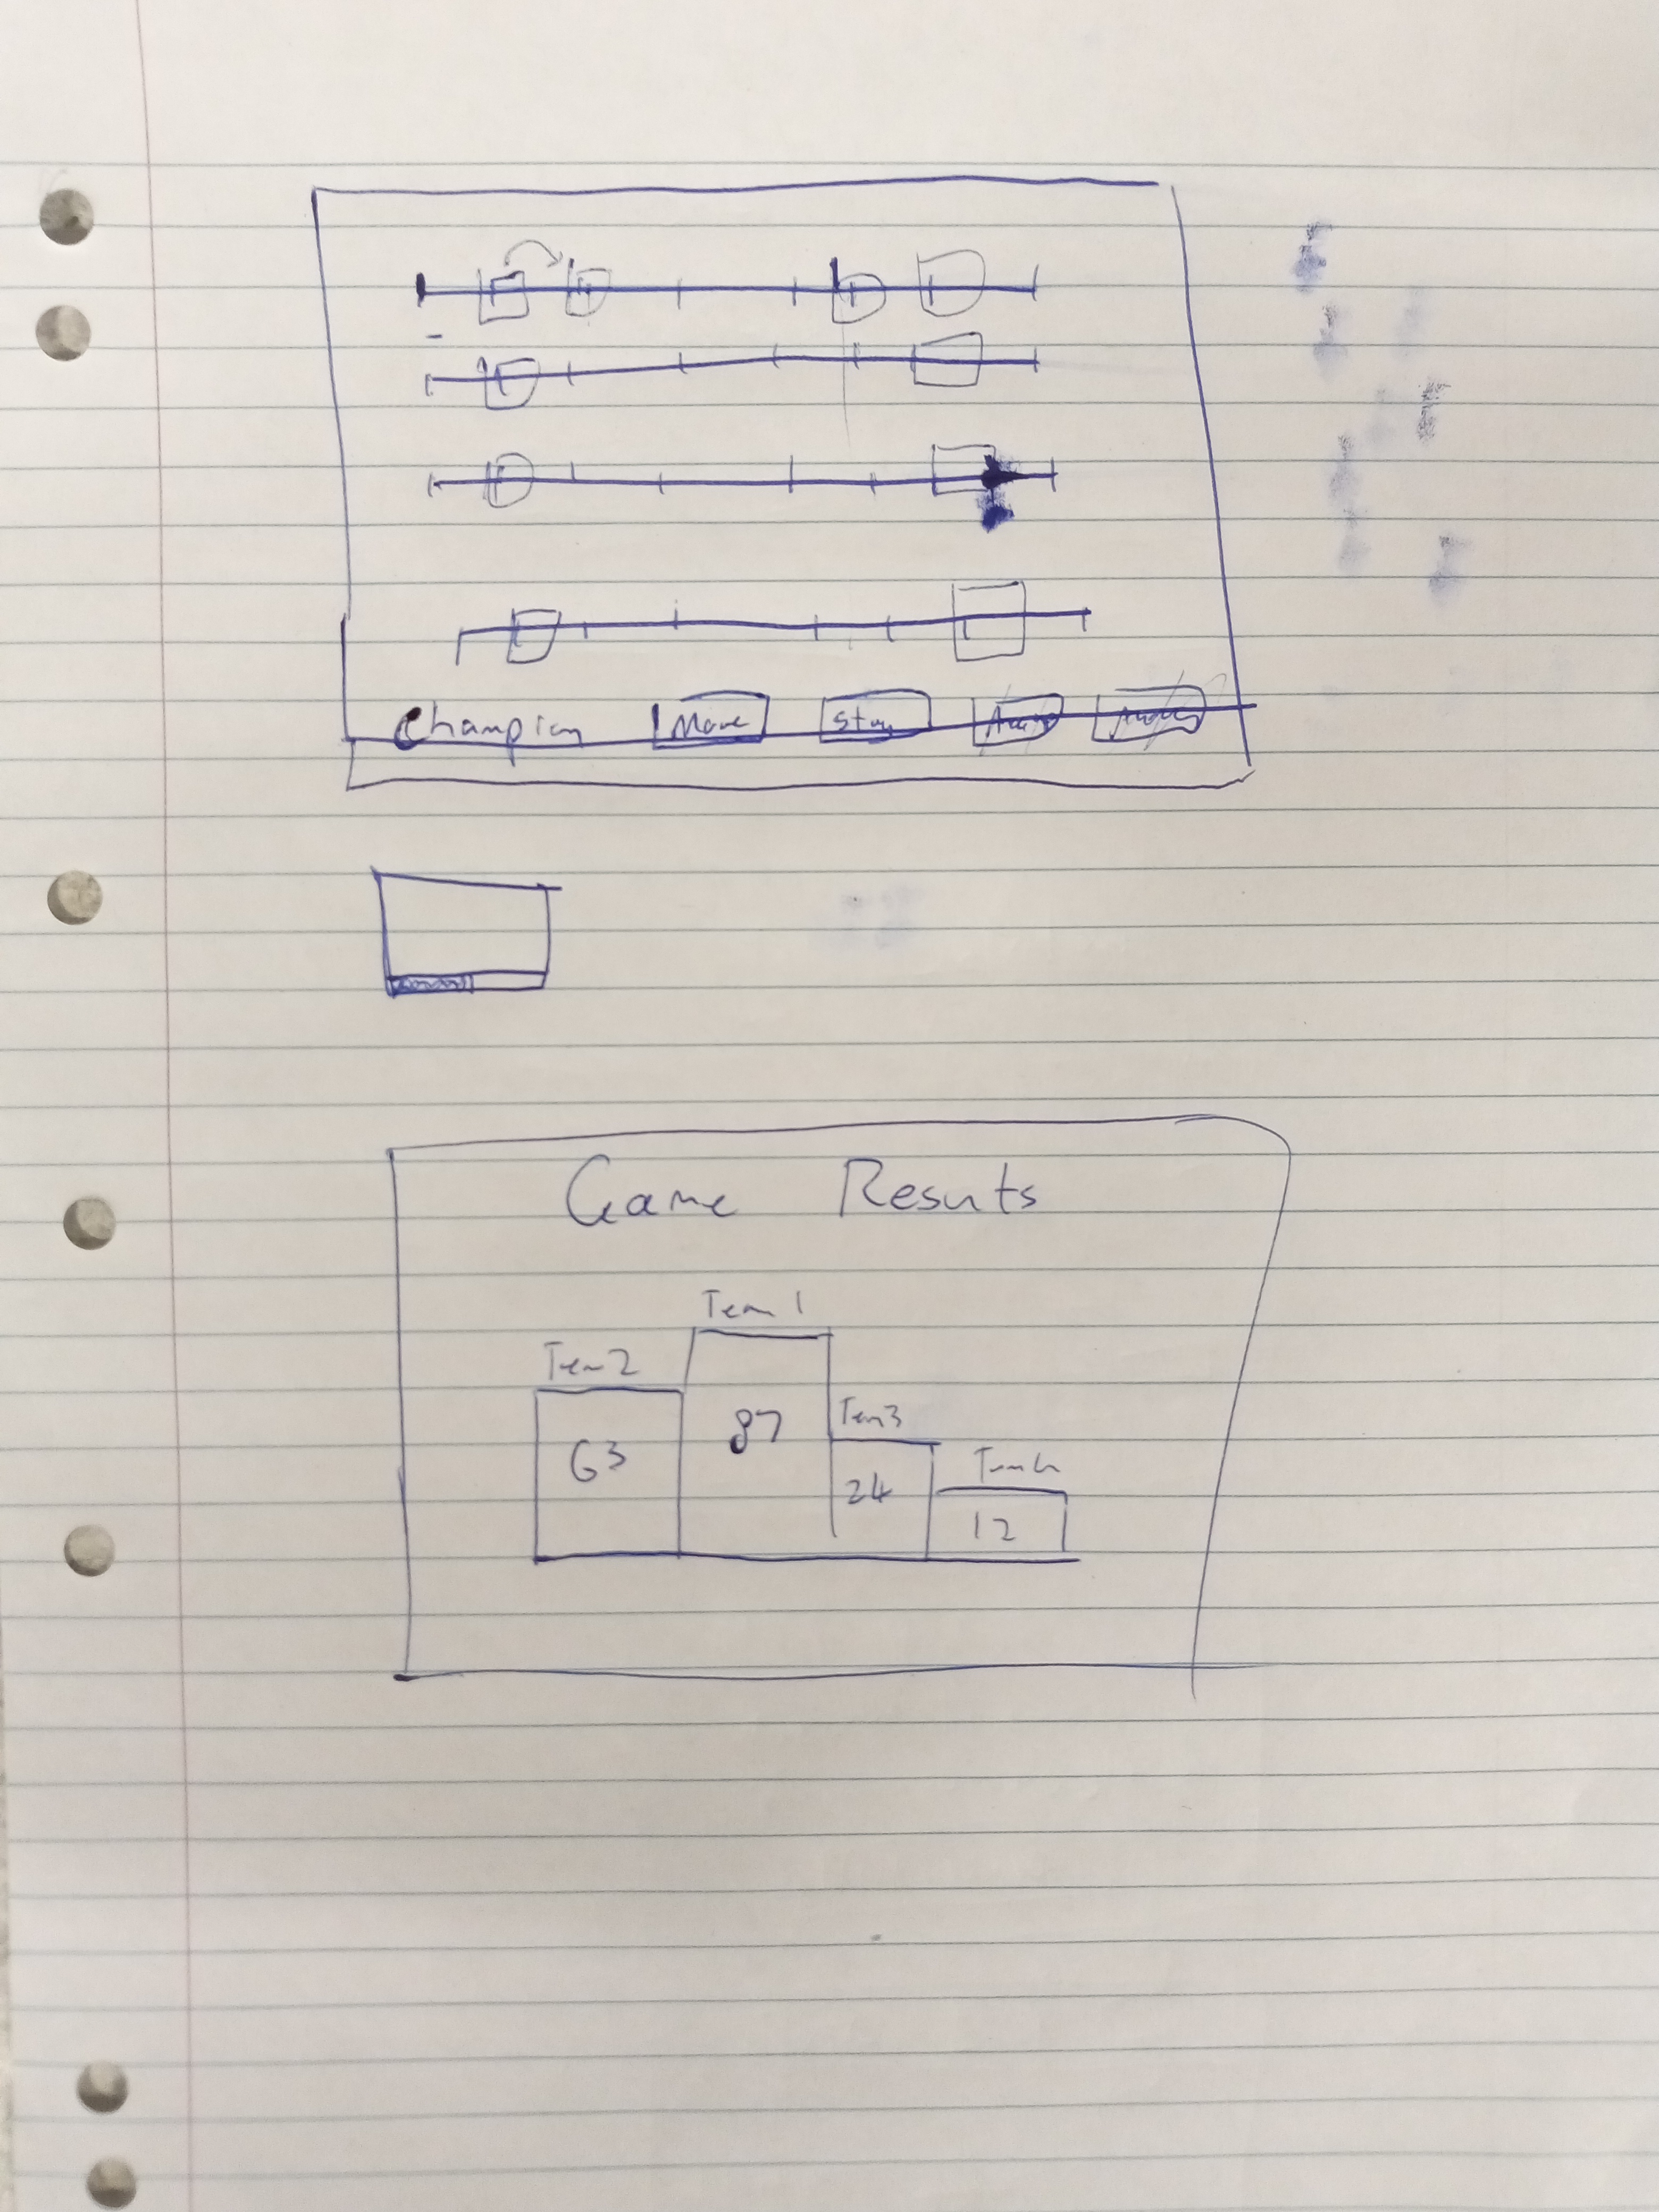 Champion Move Stay
Game Results
Team 1
Team 2
87
Team 3
63
24
Team 4
12